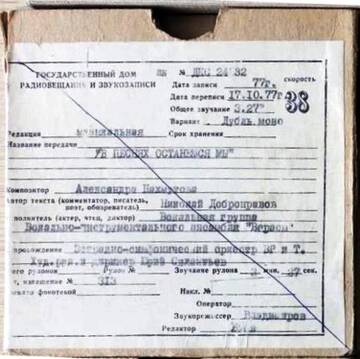 ГОСУДАРСТВЕННЫЙ ДОМ
РАДИОВЕЩАНИЯ И ЗВУКОЗАПИСИ
№
Дата записи 77г.
скорость
38
Дата переписи 17.10.77г.
Общее звучание 3.27"
Вариант Дубль.моно
Редакция музыкальная
Срок хранения
Название передачи
"В ПЕСНЯХ ОСТАНЕМСЯ МЫ"
Композитор Александра Пахмутова
Автор текста (комментатор, писатель,
поэт, обозреватель) Николай Добронравов
исполнитель (актер, чтец, диктор) Вокальная группа
Вокально-инструментального ансамбля "Верасы"
сопровождение Эстрадно-симфонический оркестр ВР и Т.
Худ.рук.и дирижер Юрий Силантьев
рулонов Рулон № Звучание рулона 3 мин. 27 сек.
313
фонотекой Накл. №
Оператор
Звукорежиссер Владимиров
Редактор